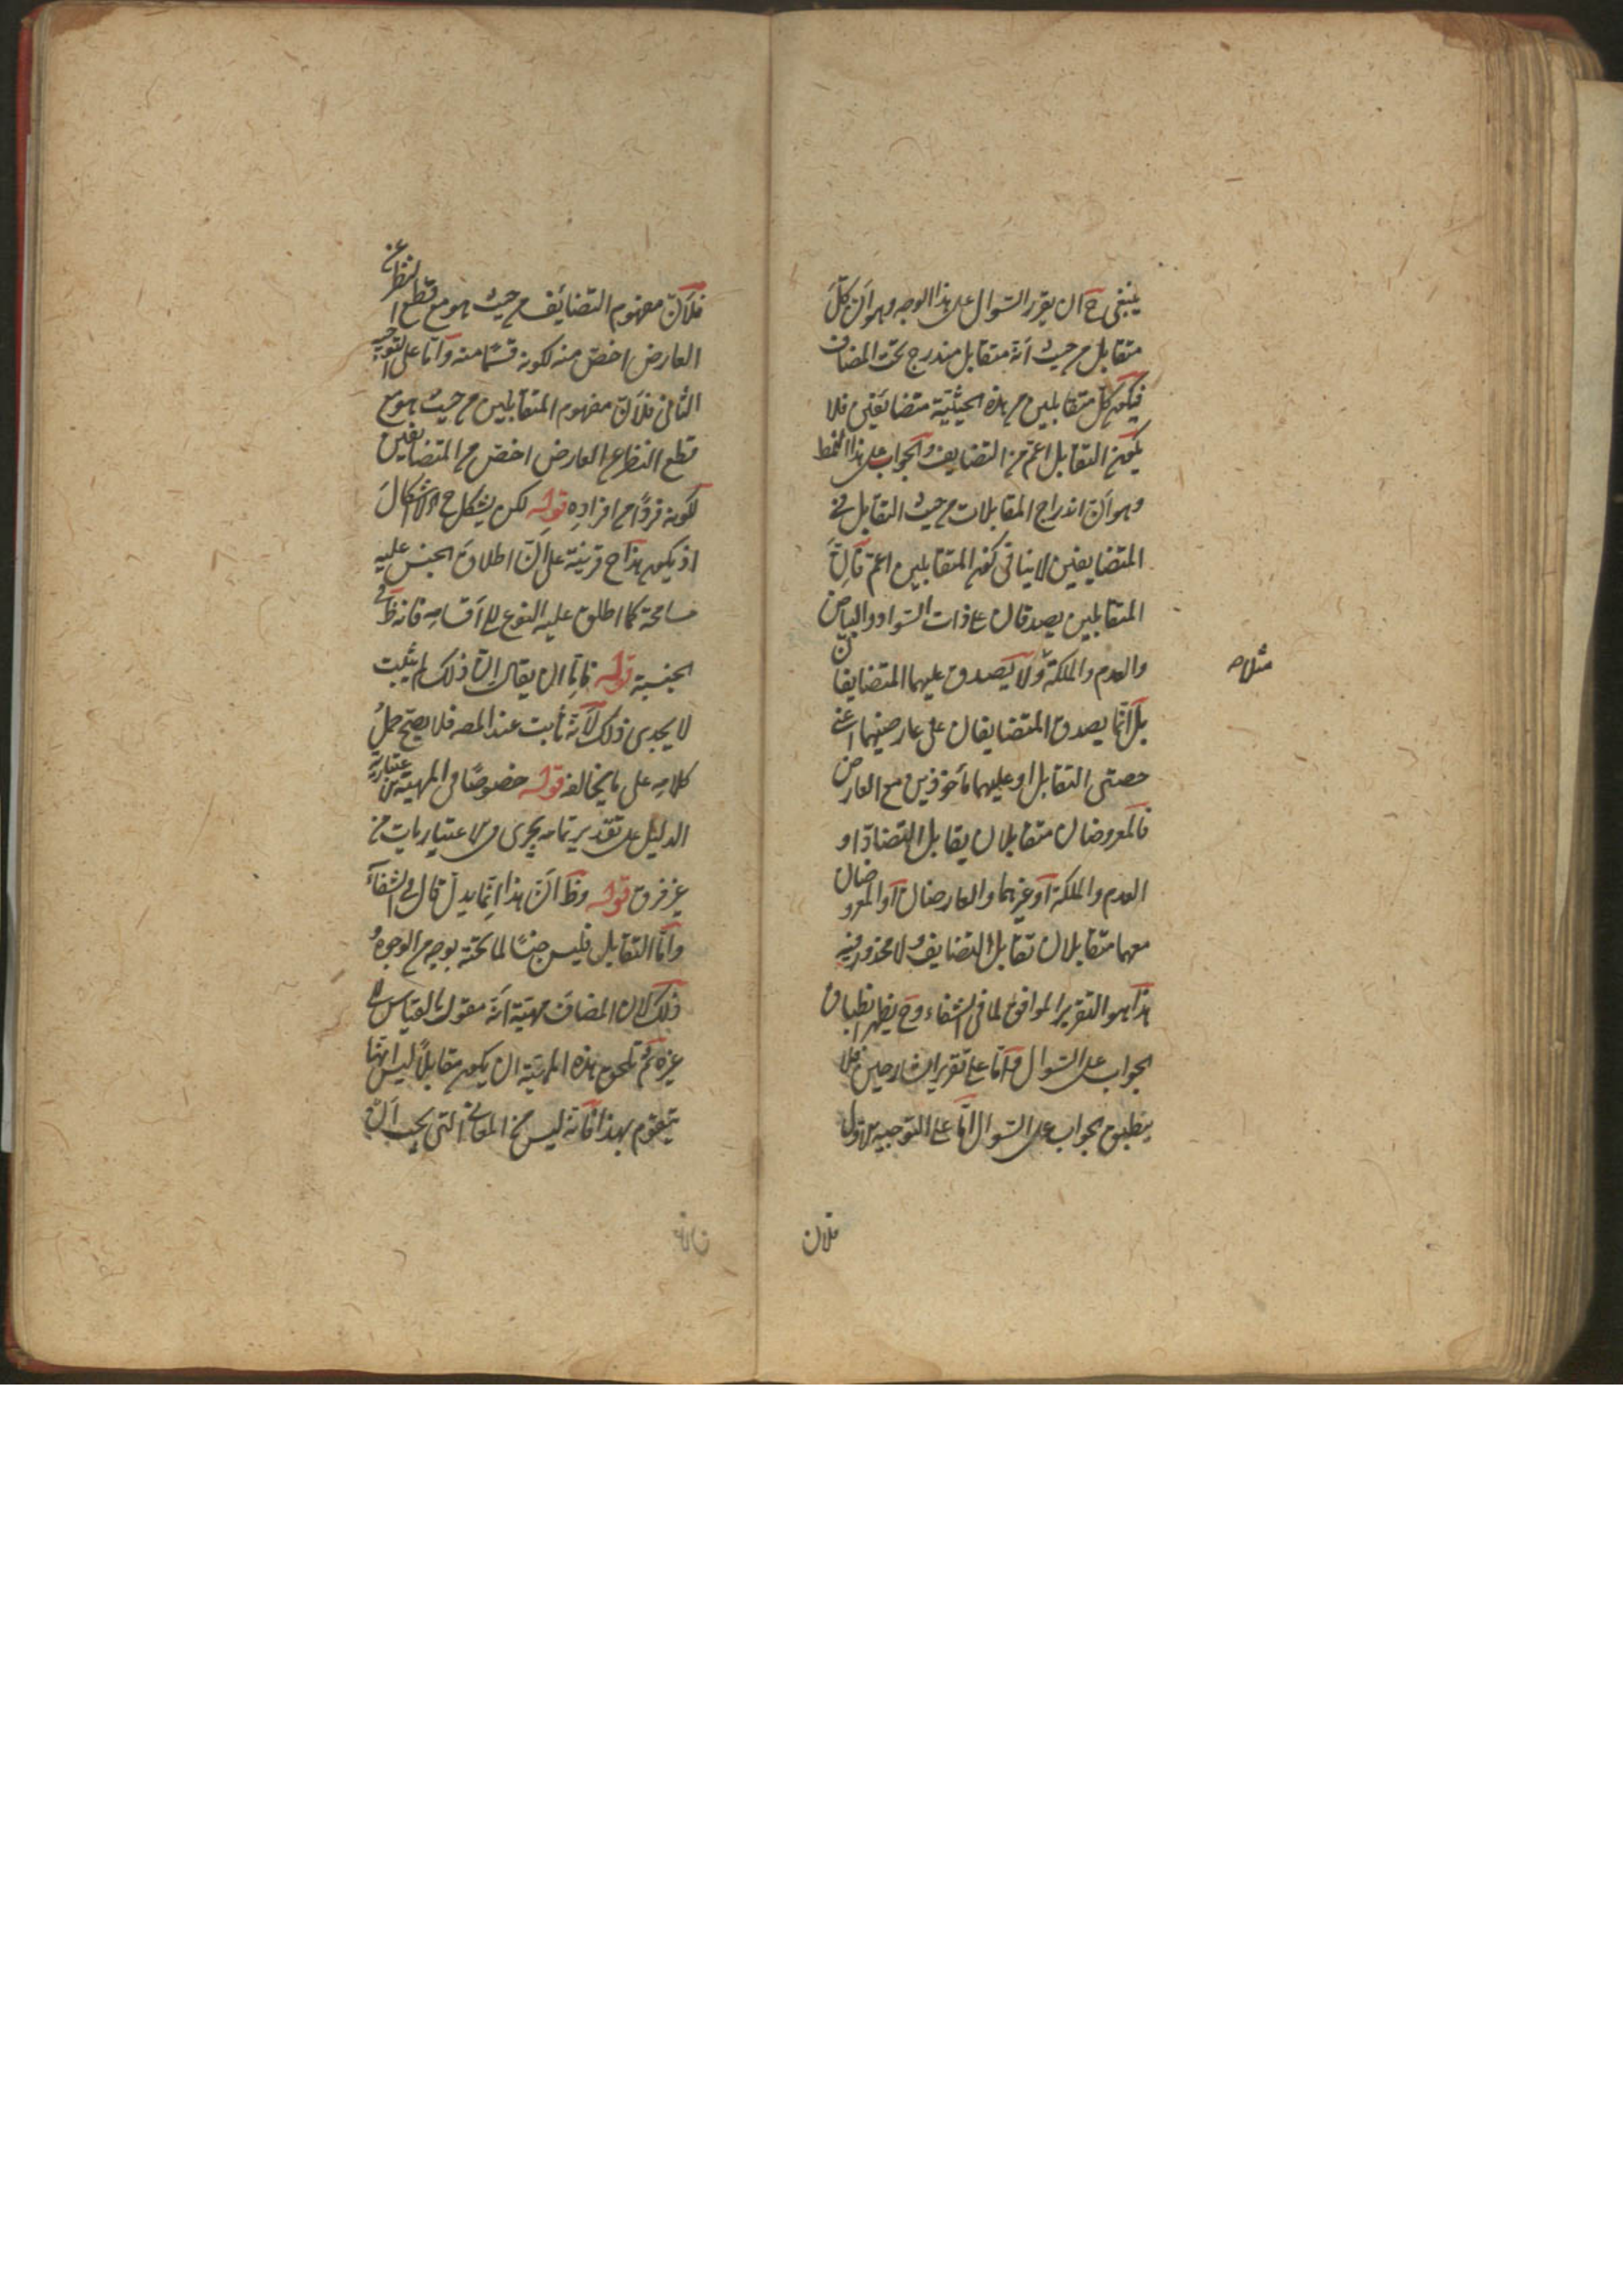 ينبغى ح ان يقرر السؤال على هذا الوجه وهو ان كل
متقابل من حيث انه متقابل مندرج تحت المضاف
فيكون كل متقابلين من هذه الحيثية متضائفين فلا
يكون التقابل اعم من التضايف والجواب على هذا النمط
وهو ان اندراج المقابلات من حيث التقابل فى
المتضايفين لا ينافى كون المتقابلين اعم فان
المتقابلين يصدقان على ذات السواد والبياض
والعدم والملكة ولا يصدق عليهما المتضايفان
مثلا صح
بل انما يصدق المتضايفان على عارضيهما اعنى
حصتى التقابل او عليهما مأخوذين مع العارض
فالمعروضان متقابلان بتقابل التضاد او
العدم والملكة او غيرهما والعارضان او المعروضان
معهما متقابلان تقابل التضايف ولا محذور فيه
هذا هو التقرير الموافق لما فى الشفاء وح يظهر انطباق
الجواب على السؤال واما على تقرير الشارحين فلا
ينطبق الجواب على السؤال اما على التوجيه الاول
فلان
فلان مفهوم التضائف من حيث هو مع قطع النظر عن
العارض اخص منه لكونه قسما منه واما على التوجيه
الثانى فلان مفهوم المتقابلين من حيث هو مع
قطع النظر عن العارض اخص من المتضايفين
لكونه فردا من افراده قوله لكن يشكل ح الاشكال
اذ يكون هذا ح قرينة على ان اطلاق الجنس عليه
مسامحة كما اطلق عليه النوع الى اقسامه فانه ظ فى
الجنسية قوله فاما ان يقال ان ذلك لم يثبت
لا يجدى ذلك لانه ثابت عند المصـ فلا يصح حمل
كلامه على ما يخالفه قوله خصوصا فى المهية الاعتبارية
الدليل على تقدير تمامه يجرى فى الاعتباريات من
غير فرق قوله وظ ان هذا انما يدل قال فى الشفآء
واما التقابل فليس جنسا لما تحته بوجه من الوجوه و
ذلك لان المضاف مهية انه مقول بالقياس الى
غيره ثم تلحق هذه المهية ان يكون مقابلا ليس انها
تتقوم بهذا فانه ليس من المعانى التى يجب ان